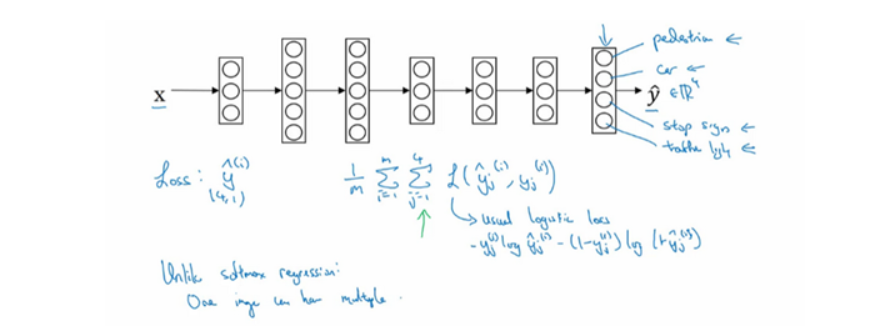 pedestrian ←
car ←
x
ŷ ∈ ℝ⁴
stop sign ←
traffic light ←
Loss: ŷ^(i)
(4,1)
1/m Σ_{i=1}^{m} Σ_{j=1}^{4} L(ŷ_j^(i), y_j^(i))
↳ usual logistic loss
-y_j^(i) log ŷ_j^(i) - (1-y_j^(i)) log (1-ŷ_j^(i))
Unlike softmax regression:
One image can have multiple .